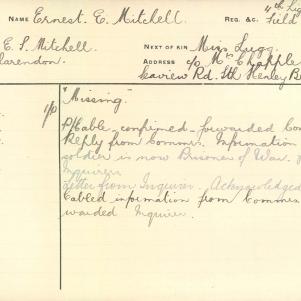 NAME Ernest. E. Mitchell. REG. &C.
Field
E. S. Mitchell. NEXT OF KIN Miss Lugg.
larendon. ADDRESS c/o Mrs Chapple
Seaview Rd. Sth Henley Be
"Missing"
P/Cable confirmed - forwarded
Reply from Commrs. Information
soldier is now Prisoner of War.
Inquirer.
Letter from Inquirer. Acknowledged
Cabled information from Commrs
warded Inquirer.